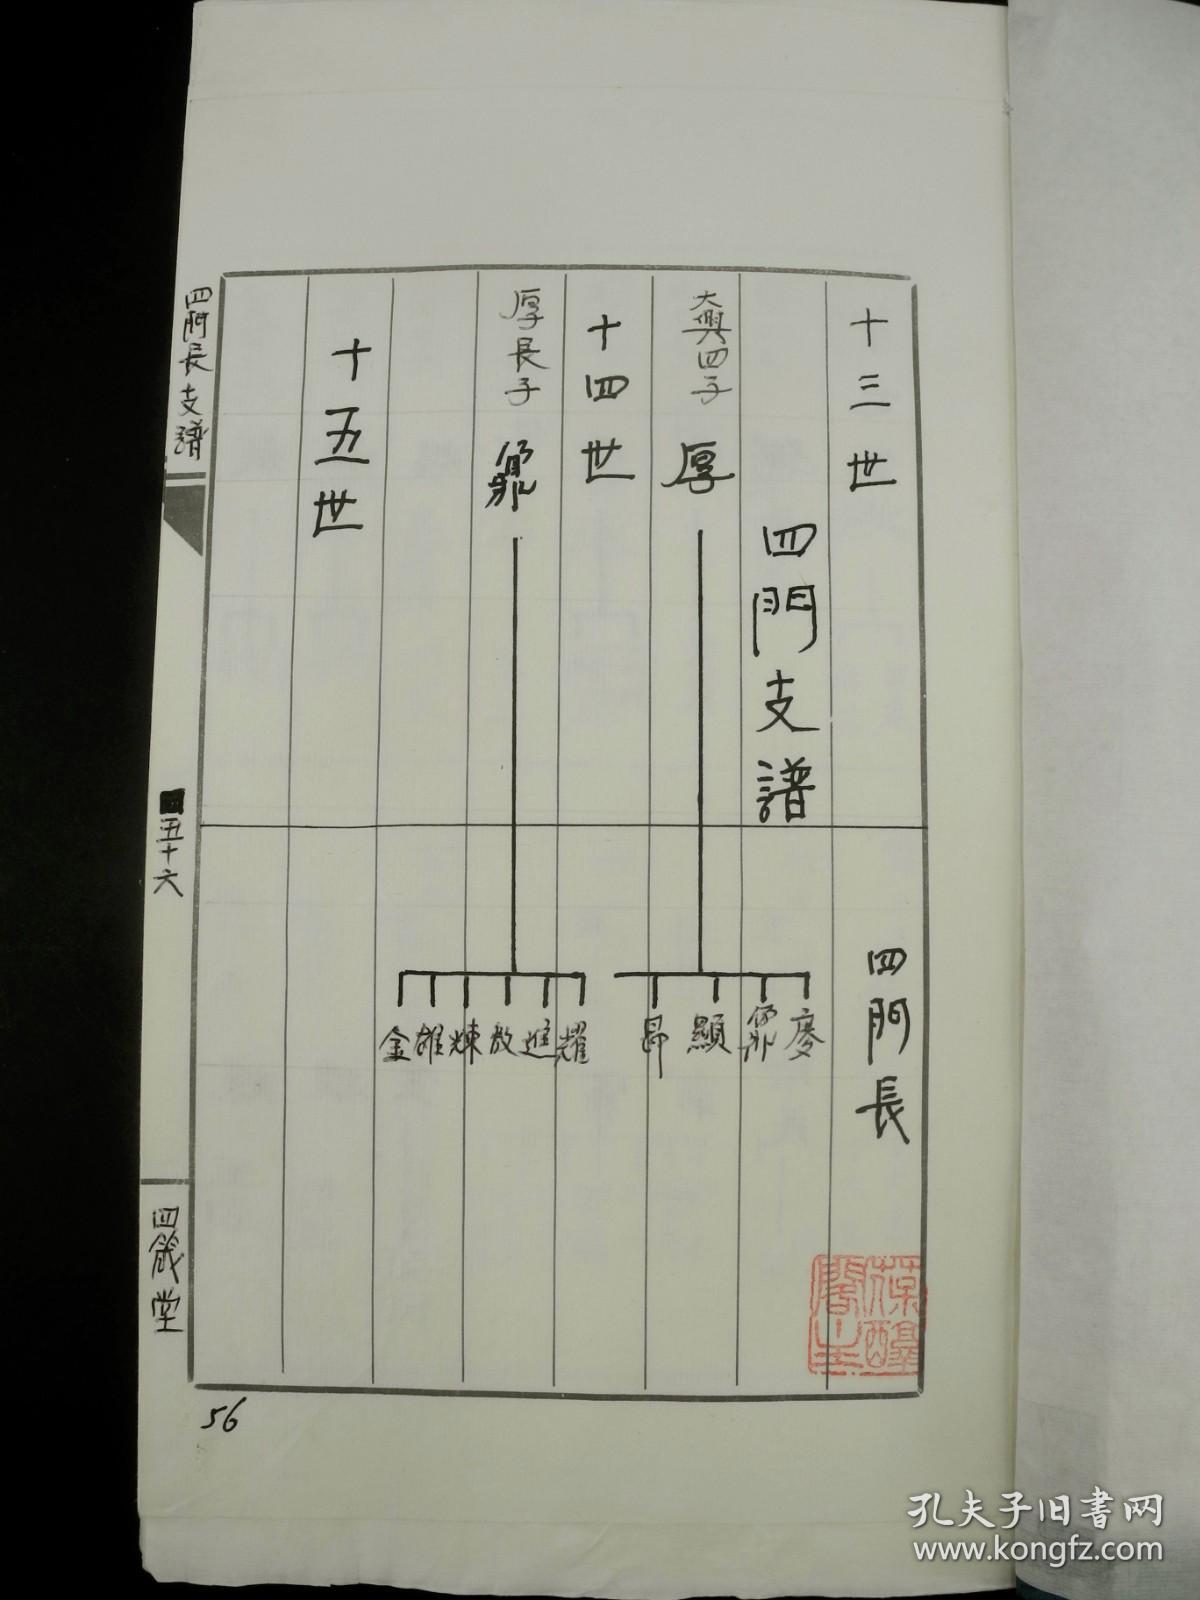 十三世
四門支譜
四門長
大興四子 厚
慶
顯
昂
十四世
厚長子
耀
進
敖
煉
雄
金
十五世
四門長支譜
五十六
四箴堂
56
孔夫子旧书网
www.kongfz.com